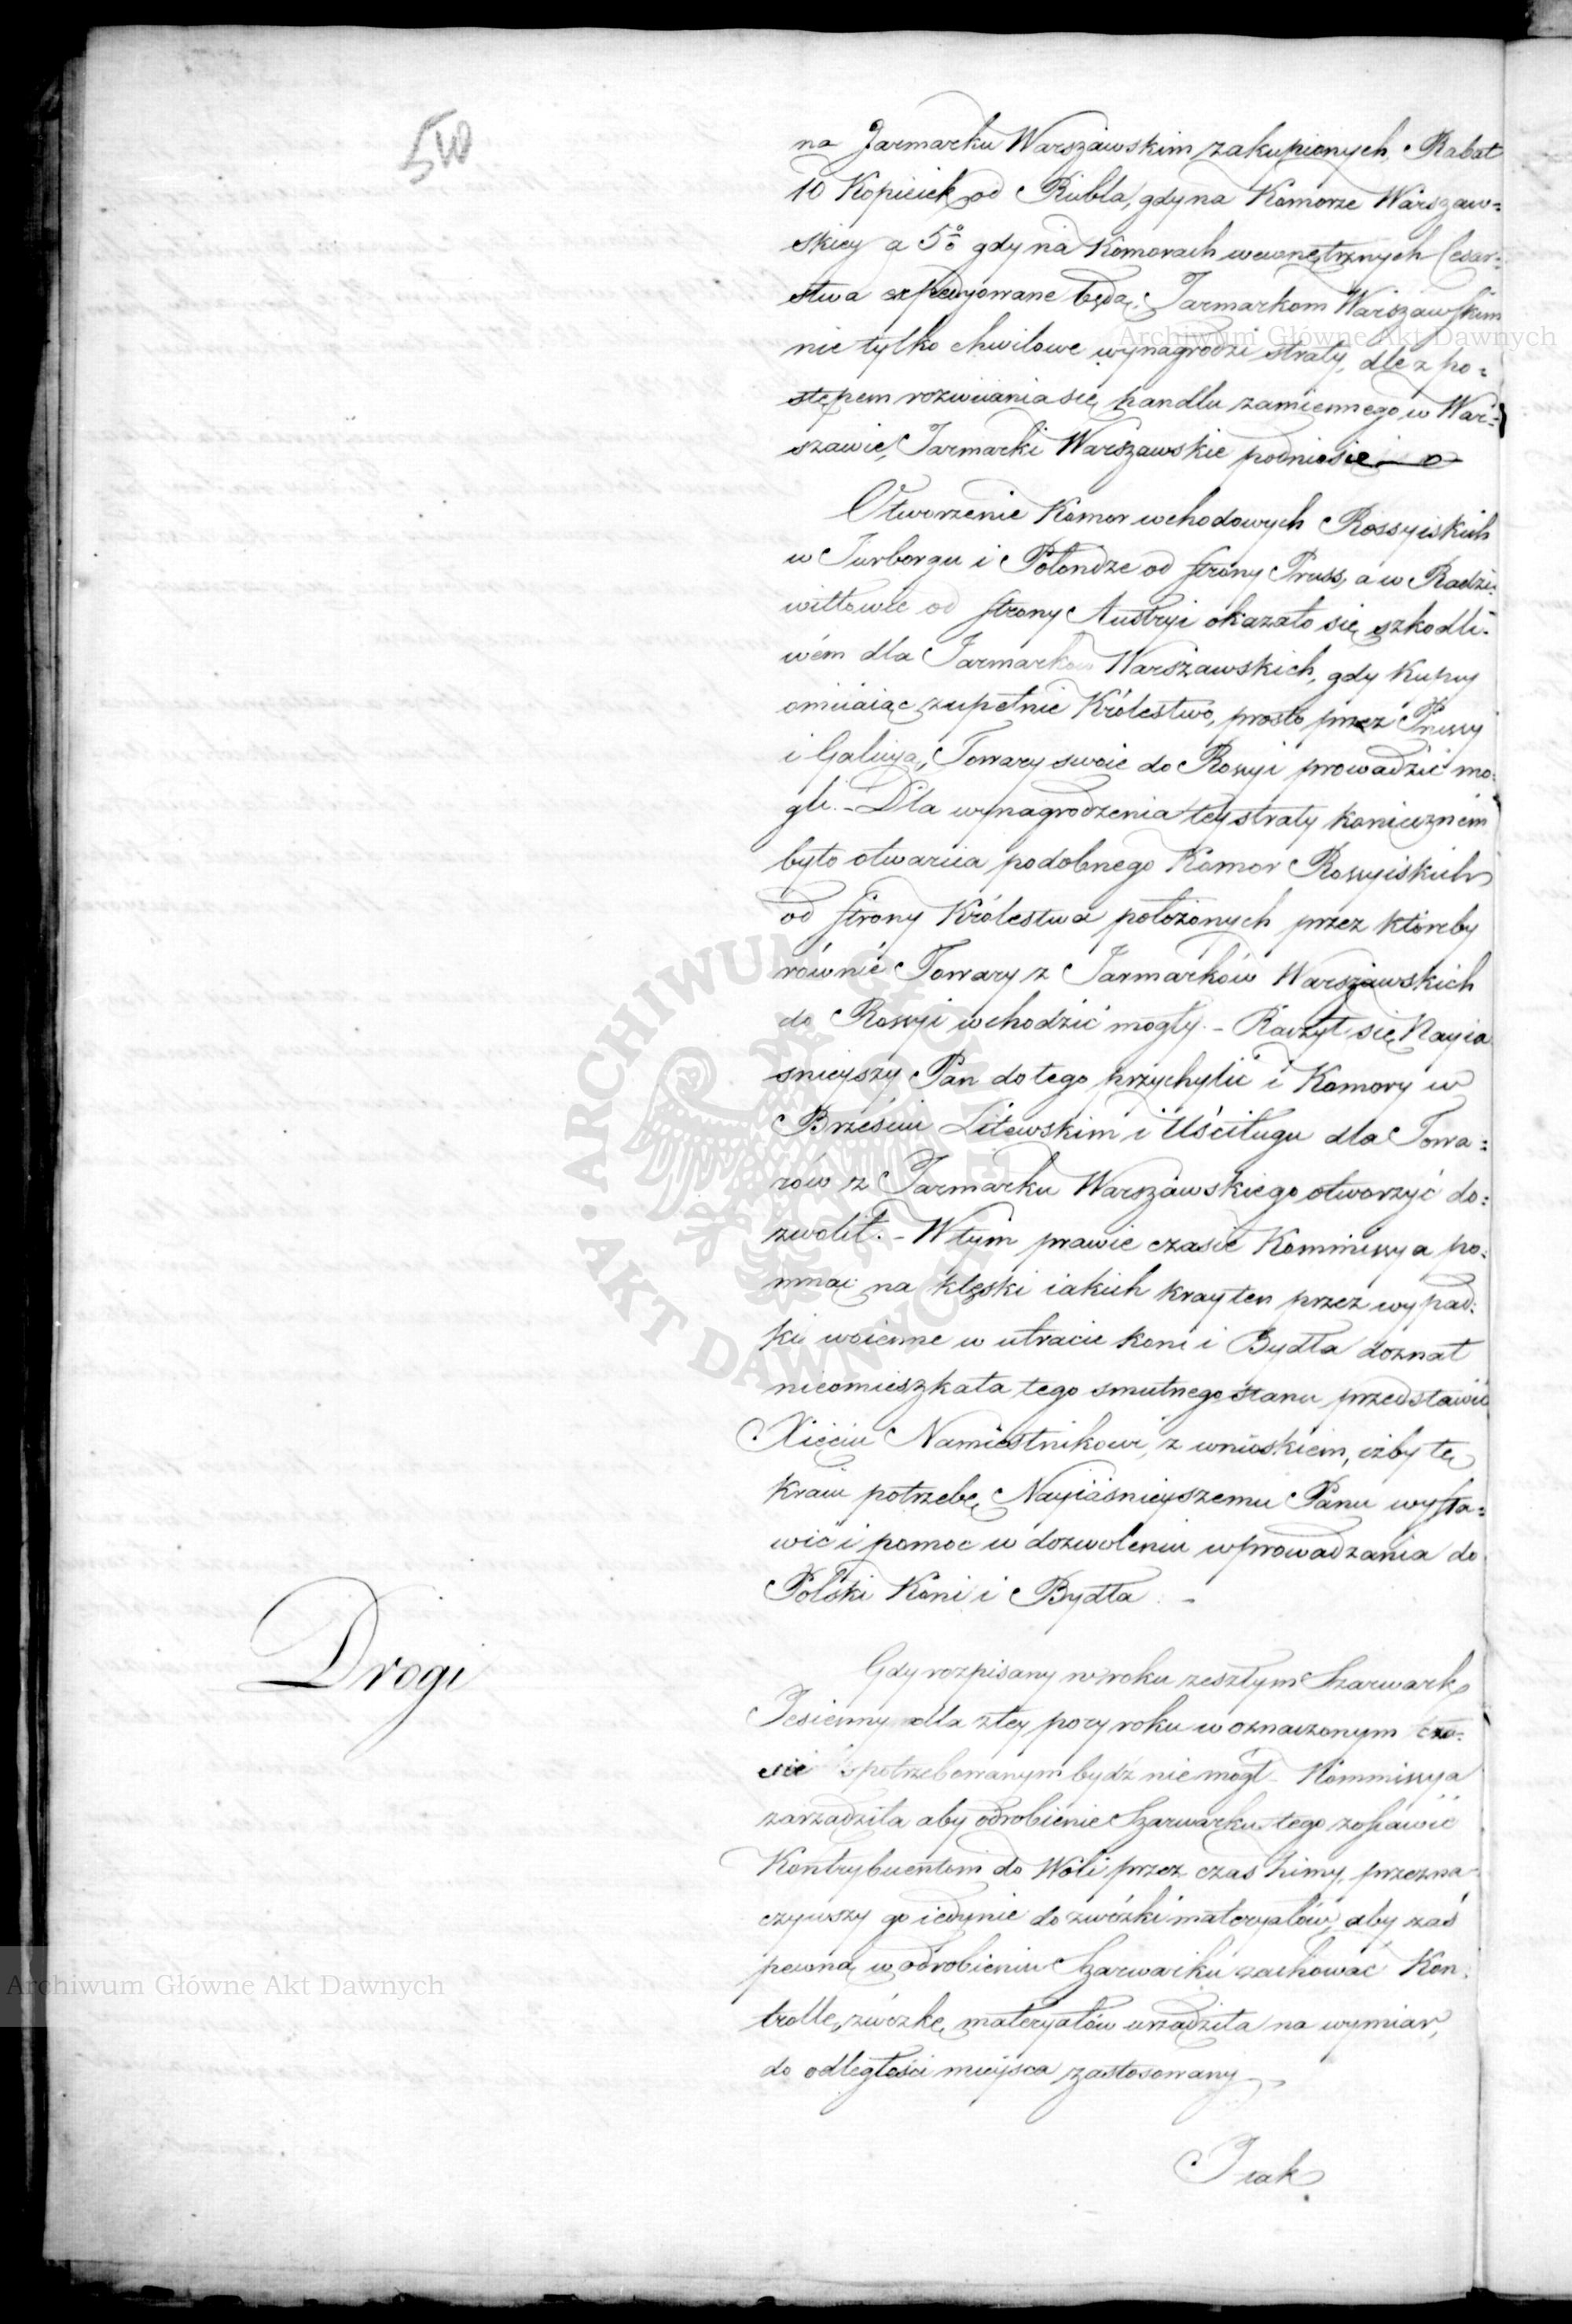 510
na Jarmarku Warszawskim zakupionych, Rabat
10 Kopieiek od Rubla, gdy na Komorze Warszaw=
skiey a 5% gdy na Komorach wewnętrznych Cesar=
stwa expedyowane będą, Jarmarkom Warszawskim
nie tylko chwilowe wynagrodzi straty, ale z po=
stępem rozwiiania się handlu zamiennego w War=
szawie, Jarmarki Warszawskie podniesie
Otworzenie Komor wchodowych Rossyiskich
w Jurborgu i Połondze od strony Pruss, a w Radzi=
wiłłowie od strony Austryi okazało się szkodli=
wém dla Jarmarków Warszawskich, gdy Kupcy
omiiaiąc zupełnie Królestwo, prosto przez Prussy
i Galicyą, Towary swoie do Rossyi prowadzić mo=
gli. – Dla wynagrodzenia tey straty koniecznem
było otwarcia podobnego Komor Rossyiskich
od strony Królestwa położonych przez któreby
równie Towary z Jarmarków Warszawskich
do Rossyi wchodzić mogły. – Raczył się Nayia
snieyszy Pan do tego przychylić i Komory w
Brześciu Litewskim i Uściługu dla Towa=
rów z Jarmarku Warszawskiego otworzyć do=
zwolił. – W tym prawie czasie Kommissya po=
mnąc na klęski iakich kray ten przez wypad=
ki woienne w utracie koni i Bydła doznał
nieomieszkała tego smutnego stanu przedstawić
Xięciu Namiestnikowi, z wnioskiem, iżby tę
Kraiu potrzebę Nayiaśnieyszemu Panu wysta=
wić i pomoc w dozwoleniu wprowadzania do
Polski Koni i Bydła. –
Drogi
Gdy rozpisany w roku zeszłym Szarwark
Jesienny dla złey pory roku w oznaczonym cza=
sie spotrzebowanym bydź nie mógł – Kommissya
zarządziła aby odrobienie Szarwarku tego zostawić
Kontrybuentom do Woli przez czas zimy, przezna=
czywszy go iedynie do zwózki materyałów, aby zaś
pewną w odrobieniu Szarwarku zachować Kon=
trolle, zwózkę materyałów urządziła na wymiar,
do odległości mieysca zastosowany
Jak
Archiwum Główne Akt Dawnych
Archiwum Główne Akt Dawnych
ARCHIWUM GŁÓWNE · AKT DAWNYCH ·